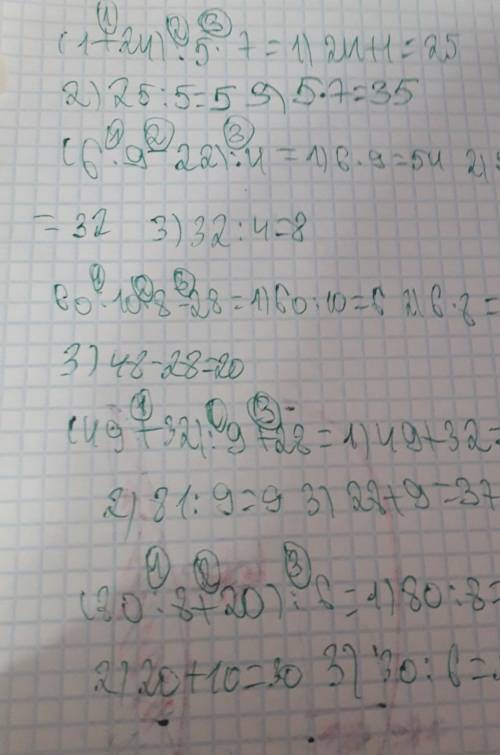 (1+24):5·7=1) 24+1=25
2) 25:5=5 3) 5·7=35
(6·9-22):4=1) 6·9=54 2)
=32 3) 32:4=8
60:10·8-28=1) 60:10=6 2) 6·8=
3) 48-28=20
(49+32):9+28=1) 49+32=
2) 81:9=9 3) 28+9=37
(80:8+20):6=1) 80:8=
2) 20+10=30 3) 30:6=